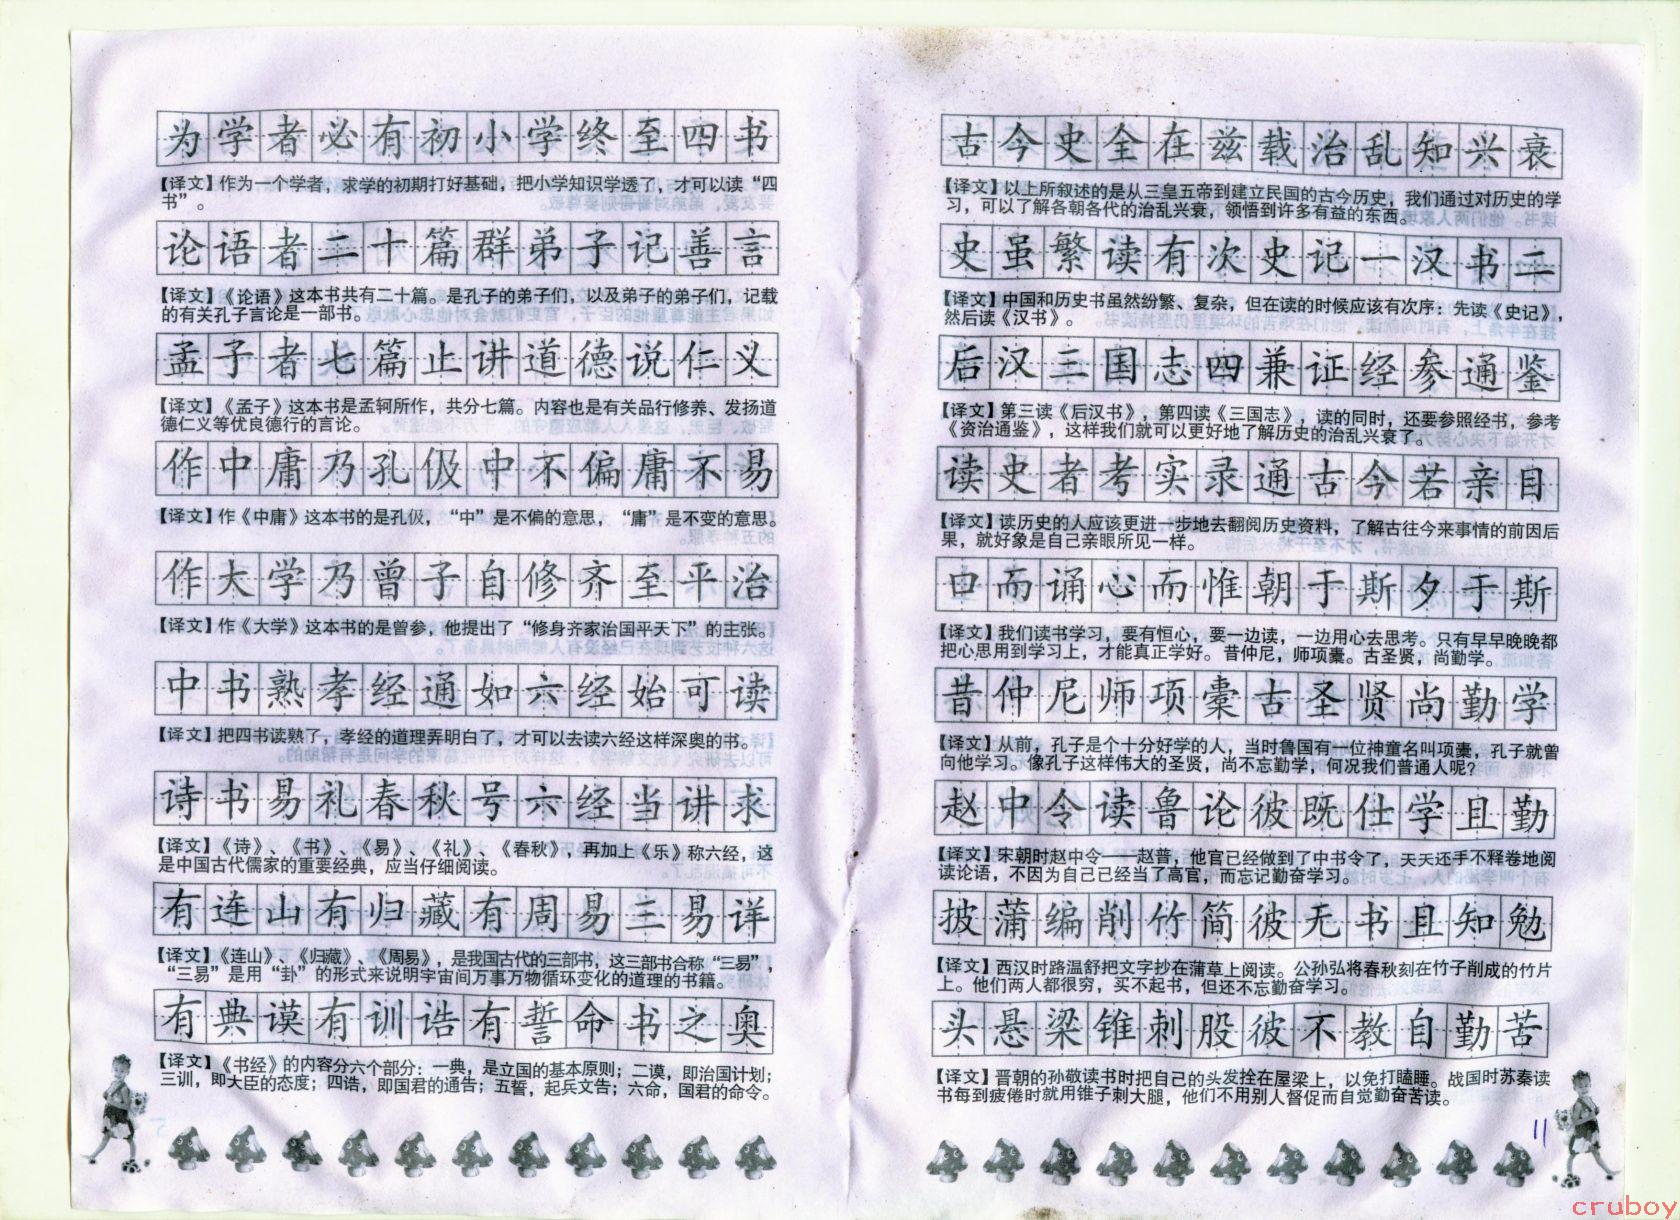 为学者必有初小学终至四书
【译文】作为一个学者，求学的初期打好基础，把小学知识学透了，才可以读“四
书”。
论语者二十篇群弟子记善言
【译文】《论语》这本书共有二十篇。是孔子的弟子们，以及弟子的弟子们，记载
的有关孔子言论是一部书。
孟子者七篇止讲道德说仁义
【译文】《孟子》这本书是孟轲所作，共分七篇。内容也是有关品行修养、发扬道
德仁义等优良德行的言论。
作中庸乃孔伋中不偏庸不易
【译文】作《中庸》这本书的是孔伋，“中”是不偏的意思，“庸”是不变的意思。
作大学乃曾子自修齐至平治
【译文】作《大学》这本书的是曾参，他提出了“修身齐家治国平天下”的主张。
中书熟孝经通如六经始可读
【译文】把四书读熟了，孝经的道理弄明白了，才可以去读六经这样深奥的书。
诗书易礼春秋号六经当讲求
【译文】《诗》、《书》、《易》、《礼》、《春秋》，再加上《乐》称六经，这
是中国古代儒家的重要经典，应当仔细阅读。
有连山有归藏有周易三易详
【译文】《连山》、《归藏》、《周易》，是我国古代的三部书，这三部书合称“三易”，
“三易”是用“卦”的形式来说明宇宙间万事万物循环变化的道理的书籍。
有典谟有训诰有誓命书之奥
【译文】《书经》的内容分六个部分：一典，是立国的基本原则；二谟，即治国计划；
三训，即大臣的态度；四诰，即国君的通告；五誓，起兵文告；六命，国君的命令。
古今史全在兹载治乱知兴衰
【译文】以上所叙述的是从三皇五帝到建立民国的古今历史，我们通过对历史的学
习，可以了解各朝各代的治乱兴衰，领悟到许多有益的东西。
史虽繁读有次史记一汉书二
【译文】中国和历史书虽然纷繁、复杂，但在读的时候应该有次序：先读《史记》，
然后读《汉书》。
后汉三国志四兼证经参通鉴
【译文】第三读《后汉书》，第四读《三国志》，读的同时，还要参照经书，参考
《资治通鉴》，这样我们就可以更好地了解历史的治乱兴衰了。
读史者考实录通古今若亲目
【译文】读历史的人应该更进一步地去翻阅历史资料，了解古往今来事情的前因后
果，就好象是自己亲眼所见一样。
口而诵心而惟朝于斯夕于斯
【译文】我们读书学习，要有恒心，要一边读，一边用心去思考。只有早早晚晚都
把心思用到学习上，才能真正学好。昔仲尼，师项橐。古圣贤，尚勤学。
昔仲尼师项橐古圣贤尚勤学
【译文】从前，孔子是个十分好学的人，当时鲁国有一位神童名叫项橐，孔子就曾
向他学习。像孔子这样伟大的圣贤，尚不忘勤学，何况我们普通人呢？
赵中令读鲁论彼既仕学且勤
【译文】宋朝时赵中令——赵普，他官已经做到了中书令了，天天还手不释卷地阅
读论语，不因为自己已经当了高官，而忘记勤奋学习。
披蒲编削竹简彼无书且知勉
【译文】西汉时路温舒把文字抄在蒲草上阅读。公孙弘将春秋刻在竹子削成的竹片
上。他们两人都很穷，买不起书，但还不忘勤奋学习。
头悬梁锥刺股彼不教自勤苦
【译文】晋朝的孙敬读书时把自己的头发拴在屋梁上，以免打瞌睡。战国时苏秦读
书每到疲倦时就用锥子刺大腿，他们不用别人督促而自觉勤奋苦读。
11
cruboy